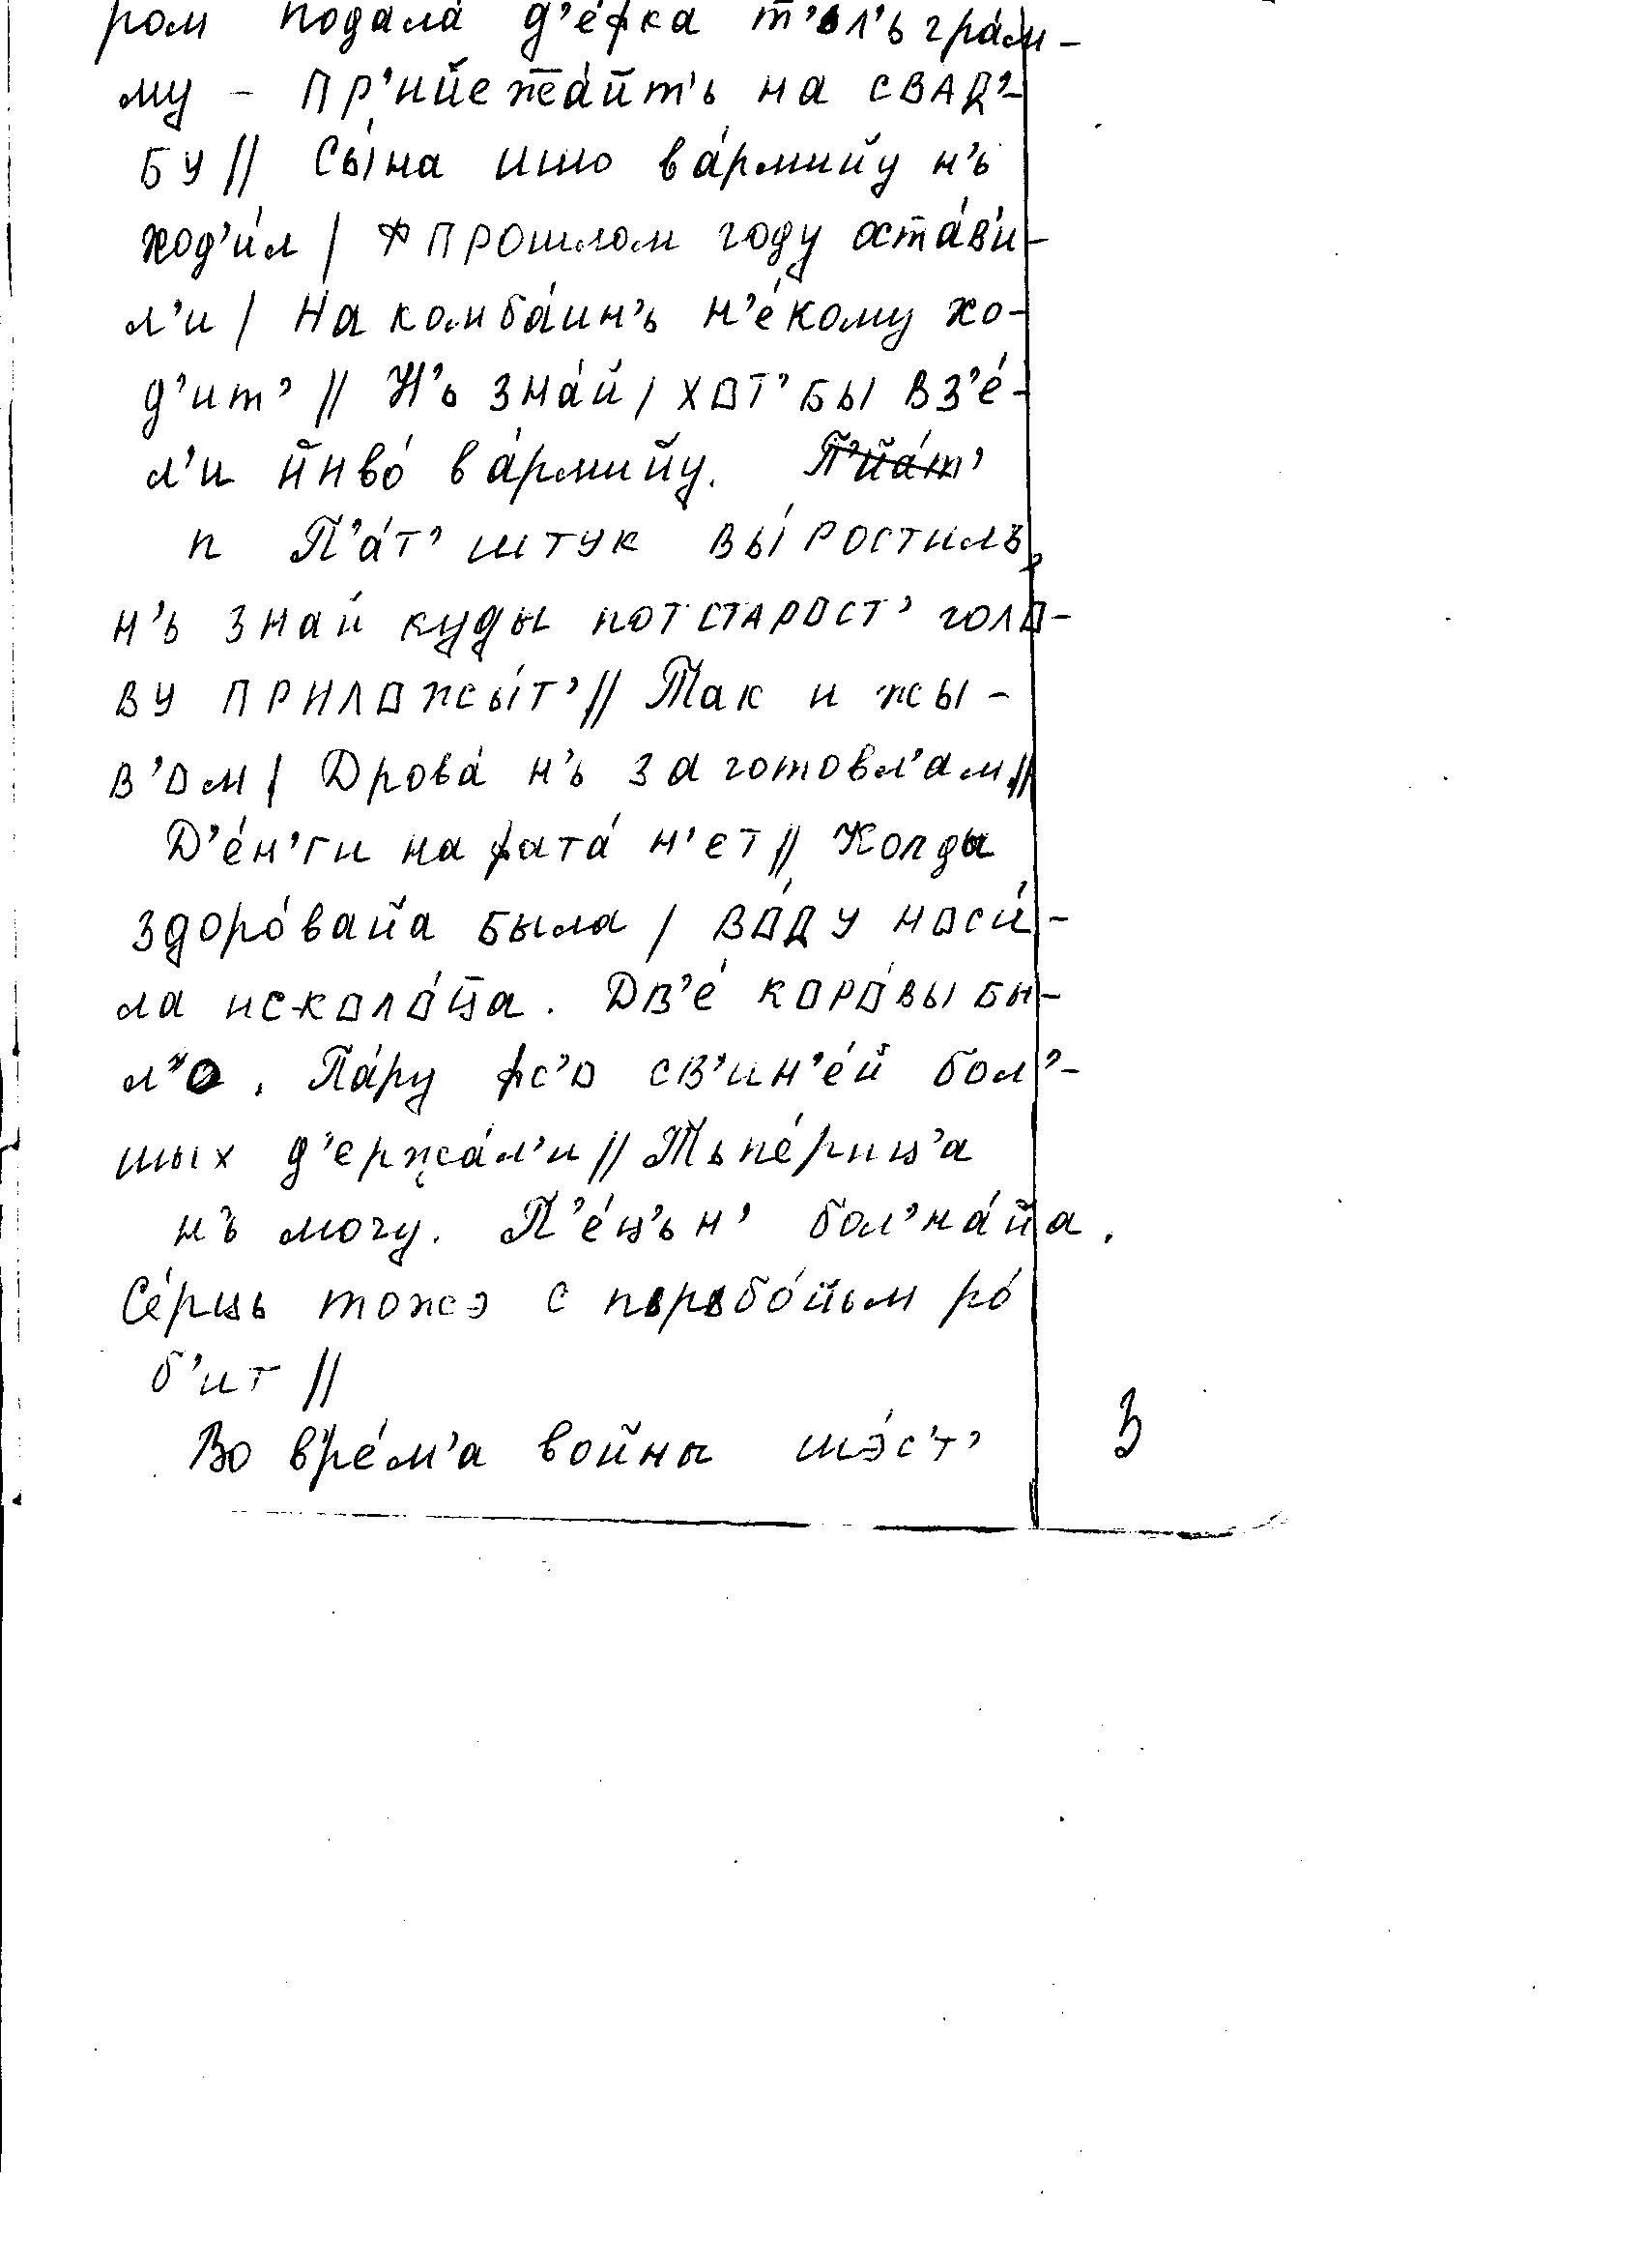 ром подала́ д'е́фка т'ьл'ьгра́м-
му - Пр'ийежа̄́йт'ь на свад'-
бу // Сы́на ишо ва́рмийу н'ь
ход'и́л / Ф прошлом году оста́в'и-
л'и / На комба́ин'ь н'е́кому хо-
д'ит' // Н'ь зна́й / хот' бы вз'е́-
л'и йиво́ ва́рмийу. П'йа́т'
п П'а́т' штук вы́ростилъ,
н'ь знай куды потстарост' голо-
ву приложы́т' // Так и жы-
в'ом / Дрова́ н'ь заготовл'ам //
Д'е́н'ги на фата́ н'ет // Колды
здоро́вайа была / во́ду носи́-
ла исколо́ца. Дв'е́ коро́вы бы-
л'о. Па́ру фс'о св'ин'е́й бол'-
шых д'ержа́л'и // Тьпе́риц'а
нъ могу. П'е́ц'ьн' бол'на́йа.
Се́рць тожэ с пьрьбо́йьм ро́
б'ит //
Во вр'е́м'а войны шэ́с'т'
3